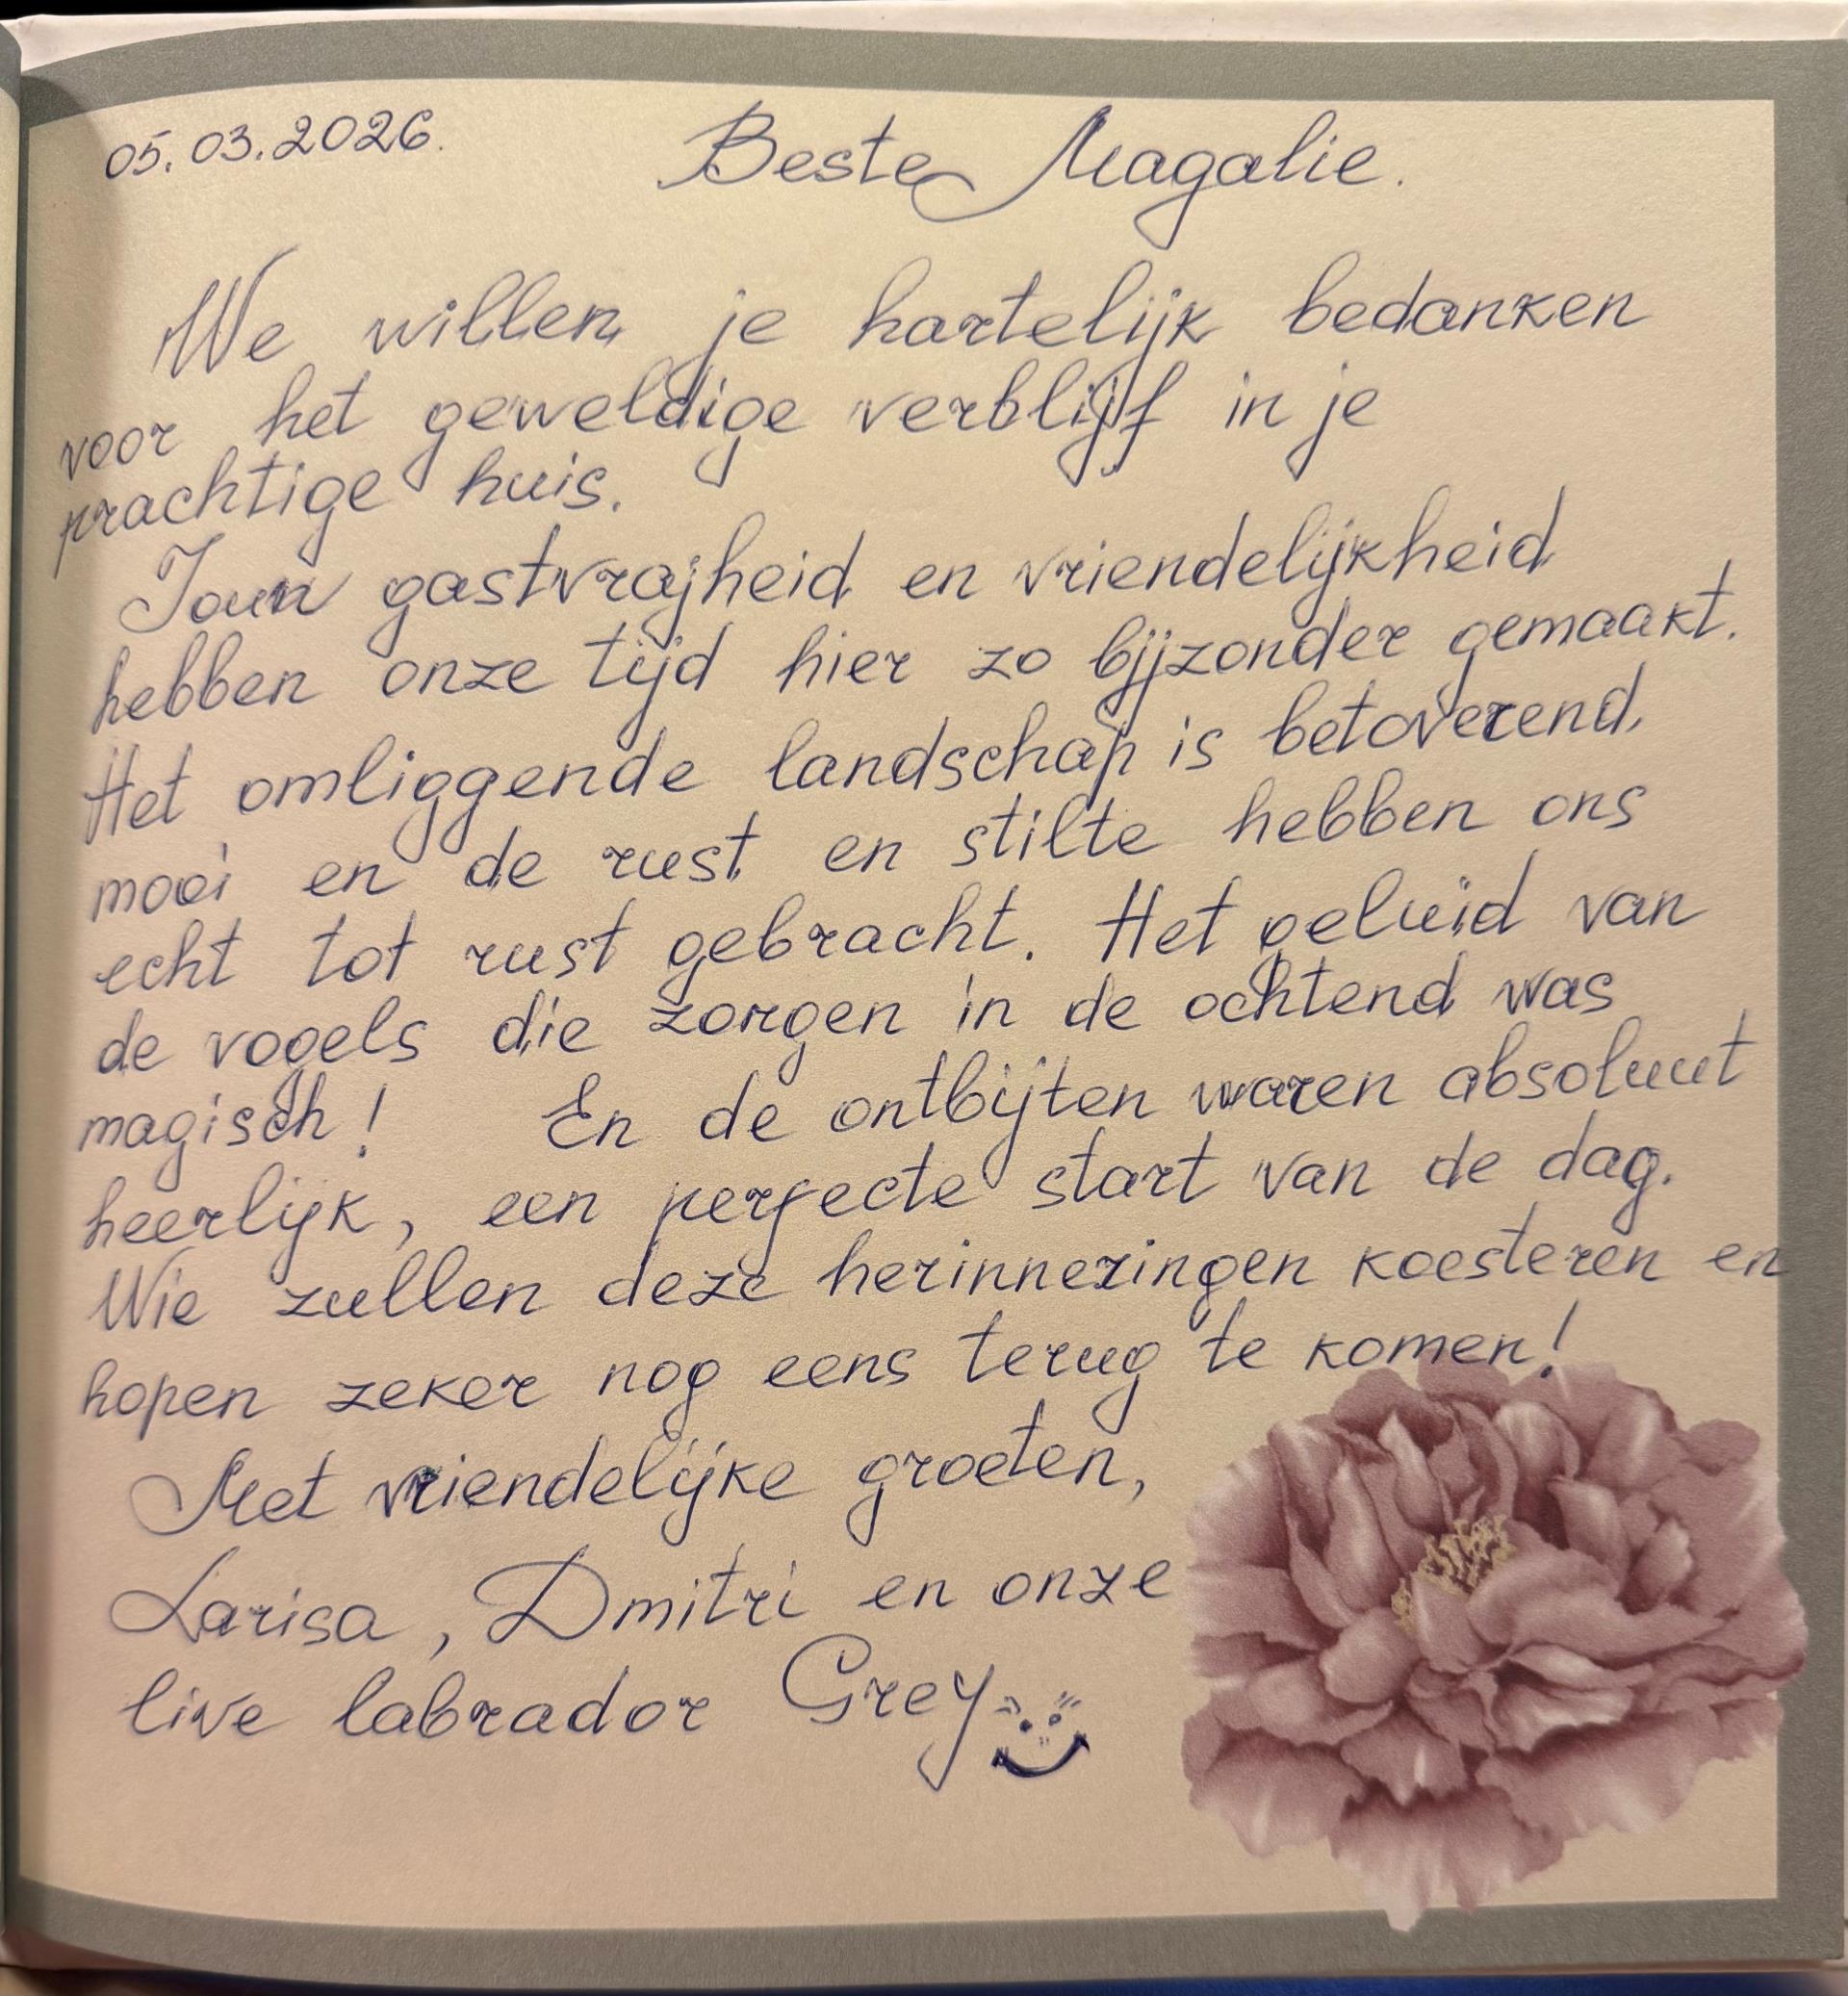 05.03.2026. Beste Magalie.
We willen je hartelijk bedanken
voor het geweldige verblijf in je
prachtige huis.
Joun gastvrajheid en vriendelijkheid
hebben onze tijd hier zo bijzonder gemaakt.
Het omliggende landschap is betoverend,
mooi en de rust en stilte hebben ons
echt tot rust gebracht. Het geluid van
de vogels die zorgen in de ochtend was
magisch! En de ontbijten waren absoluut
heerlijk, een perfecte start van de dag.
Wie zullen deze herinneringen koesteren en
hopen zeker nog eens terug te komen!
Met vriendelijke groeten,
Larisa, Dmitri en onze
live labrador Grey